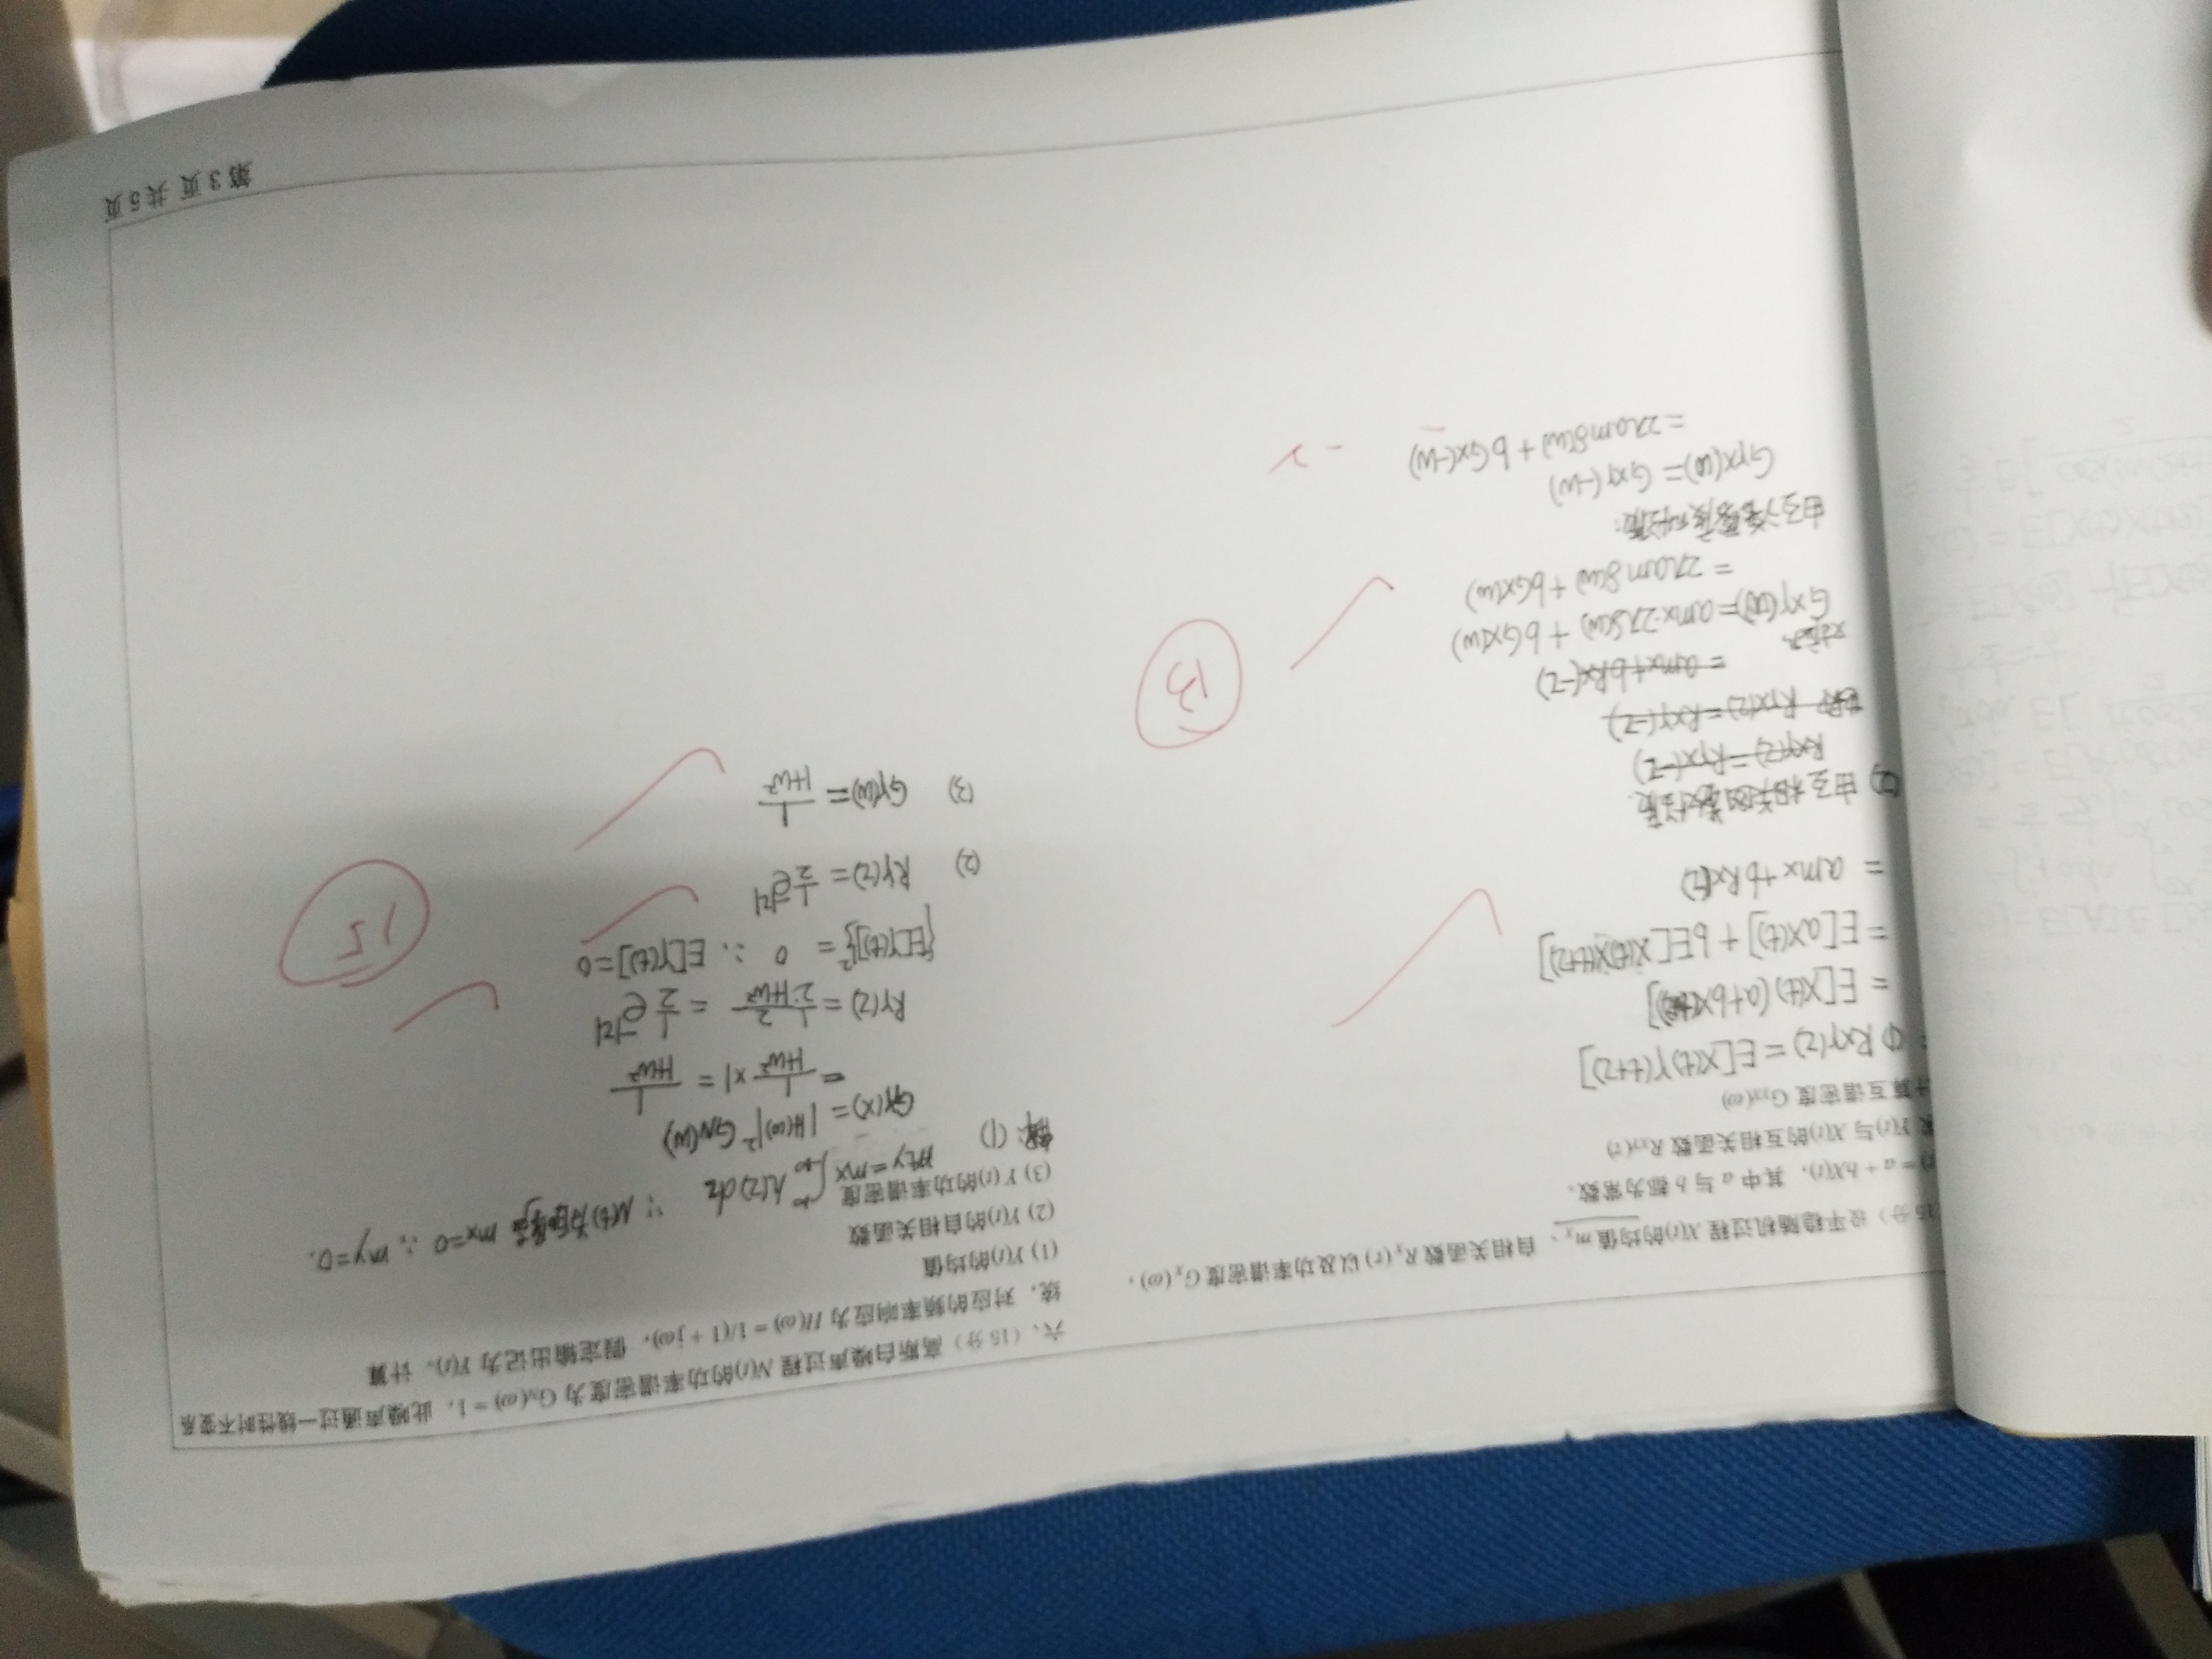 15 分）设平稳随机过程 X(t)的均值 mX、自相关函数 RX(τ) 以及功率谱密度 GX(ω)，
t) = a + bX(t)，其中 a 与 b 都为常数。
求 Y(t)与 X(t)的互相关函数 RXY(τ)
计算互谱密度 GYX(ω)
① RXY(τ) = E[X(t)Y(t+τ)]
= E[X(t)(a+bX(t+τ))]
= E[aX(t)] + bE[X(t)X(t+τ)]
= amx + bRX(τ)
(2) 由互相关函数性质.
RXY(τ) = RYX(-τ)
RYX(τ) = RXY(-τ)
= amx + bRX(-τ)
对应
GXY(ω) = amx·2πδ(ω) + bGX(ω)
= 2πamδ(ω) + bGX(ω)
由互谱密度性质:
GYX(ω) = GXY(-ω)
= 2πamδ(ω) + bGX(-ω)
-2
13
六、（15 分）高斯白噪声过程 N(t)的功率谱密度为 GN(ω) = 1，此噪声通过一线性时不变系
统，对应的频率响应为 H(ω) = 1/(1 + jω)，假定输出记为 Y(t)。计算
(1) Y(t)的均值
(2) Y(t)的自相关函数
(3) Y (t)的功率谱密度
解: (1) my = mx ∫_{-∞}^{+∞} h(τ)dτ ∵ N(t)为白噪声 mx=0 ∴ my=0.
GY(X) = |H(ω)|² GN(ω)
= 1/(1+ω²) ×1 = 1/(1+ω²)
RY(τ) = 1/2·2/(1+ω²) = 1/2 e^{-|τ|}
{E[Y(t)]}² = 0 ∴ E[Y(t)]=0
(2) RY(τ) = 1/2 e^{-|τ|}
(3) GY(ω) = 1/(1+ω²)
15
第 3 页 共 5 页